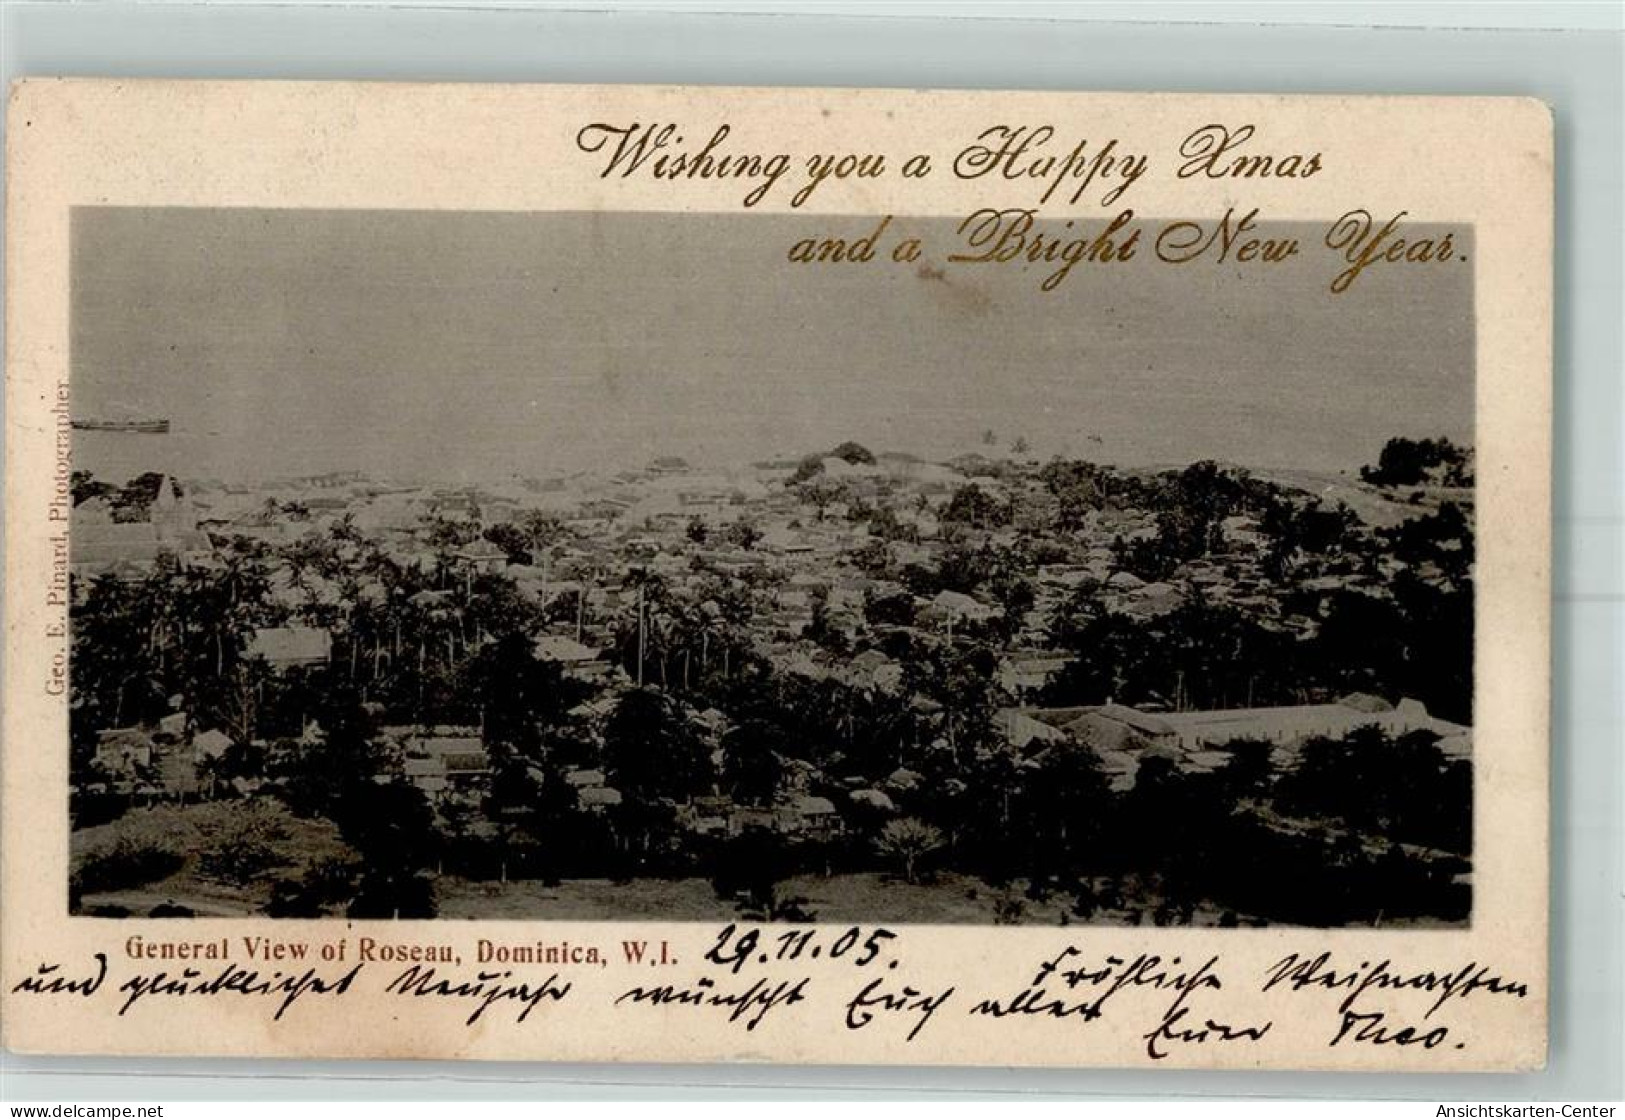 Wishing you a Happy Xmas
and a Bright New Year.
Geo. E. Pinard, Photographer
General View of Roseau, Dominica, W.I. 29.11.05.
Fröhliche Weihnachten
und glückliches Neujahr wünscht Euch allen
Euer Theo.
www.oldthing.de
Ansichtskarten-Center